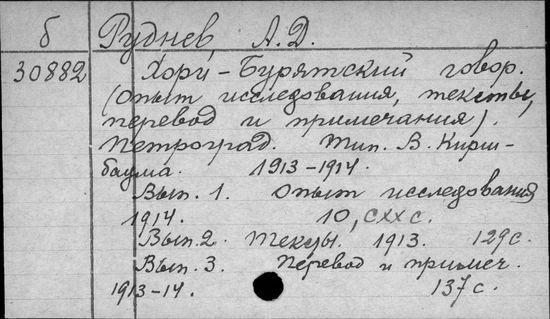 б Руднев, А.Д.
30882 Хори-Бурятский говор.
(Опыт исследования, тексты,
перевод и примечания).
Петроград. Тип. В. Кирш-
баума. 1913-1914.
Вып. 1. Опыт исследования
1914. 10, CXX с.
Вып. 2. Тексты. 1913. 129 с.
Вып. 3. Перевод и примеч.
1913-14. 137 с.